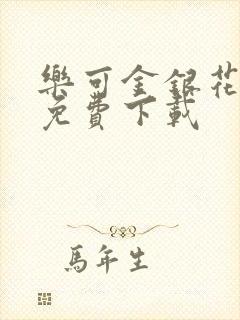 樂可金銀花
免費下載
馬年生